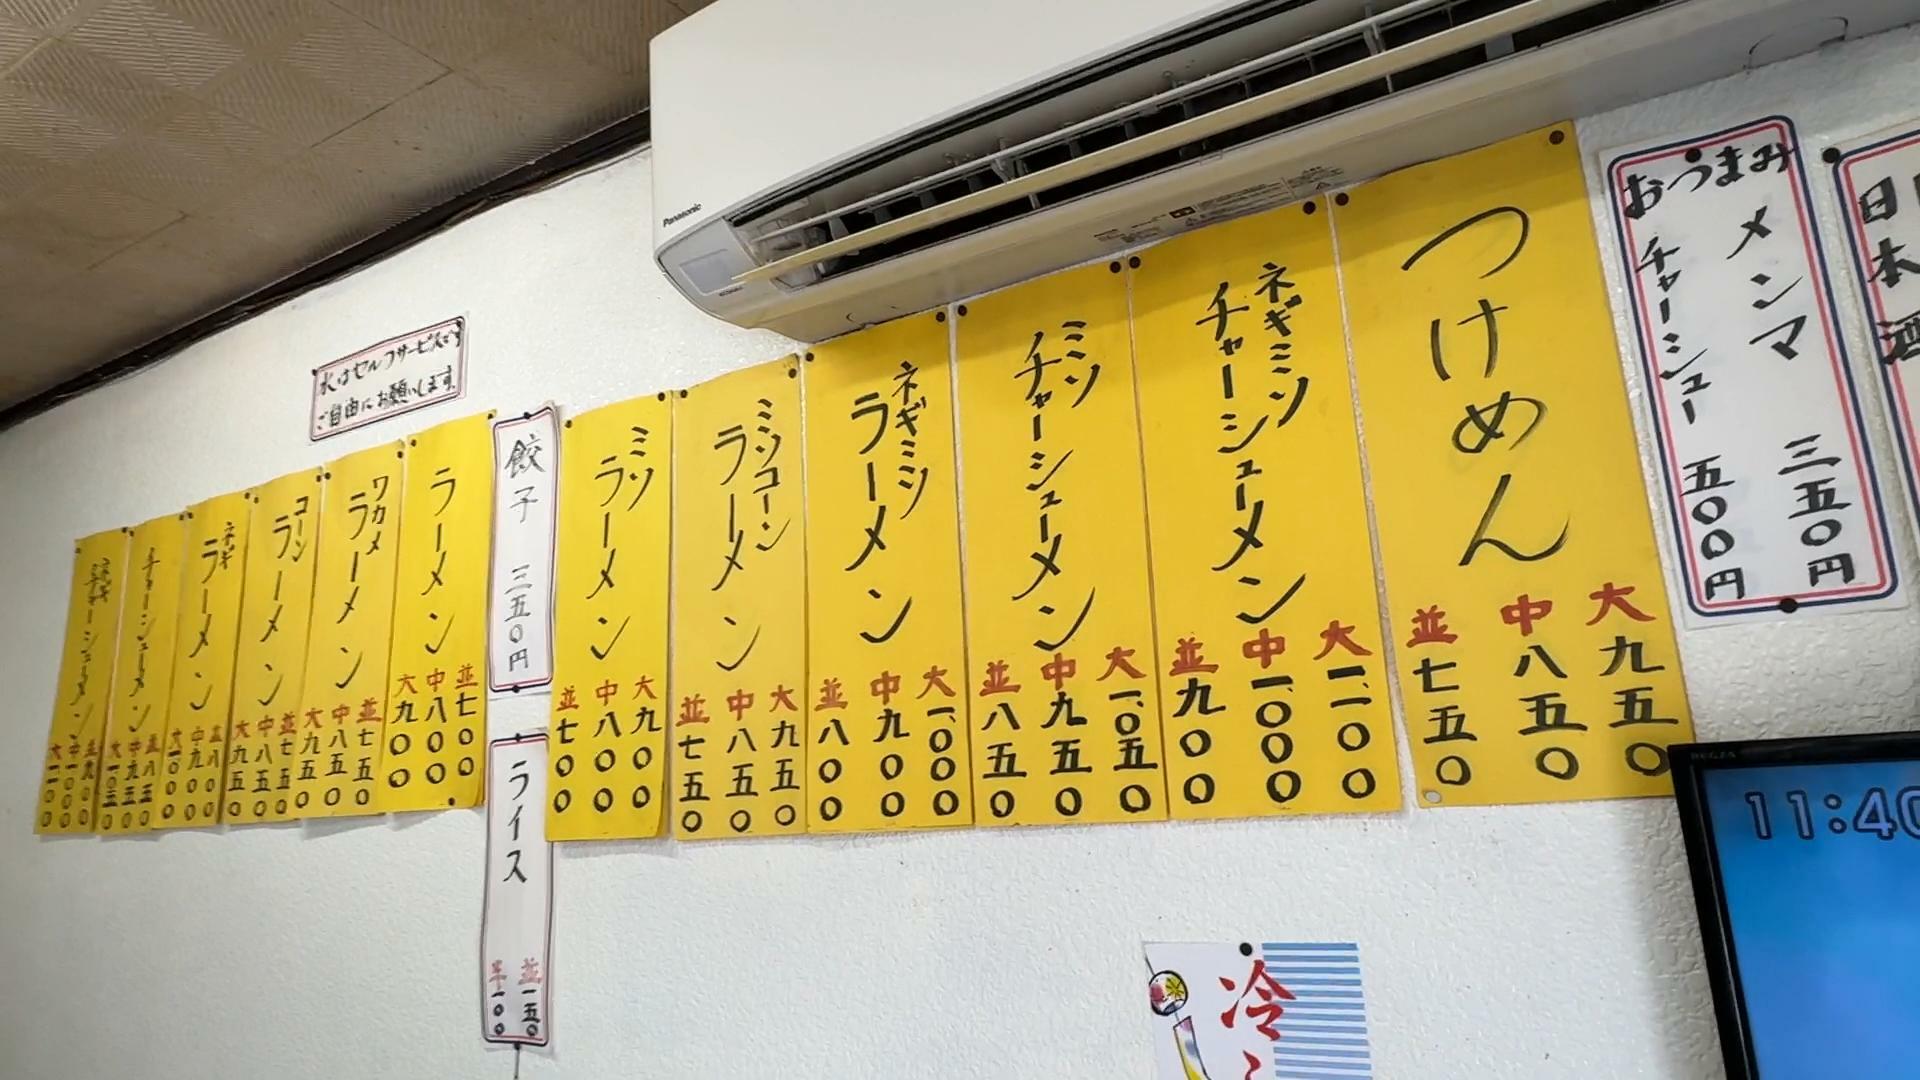 Panasonic
水はセルフサービスです
ご自由にお願いします
日本酒
おつまみ
メンマ 三五〇円
チャーシュー 五〇〇円
つけめん
大 九五〇
中 八五〇
並 七五〇
ネギミソ
チャーシューメン
大 一、一〇〇
中 一、〇〇〇
並 九〇〇
ミソ
チャーシューメン
大 一、〇五〇
中 九五〇
並 八五〇
ネギミソ
ラーメン
大 一、〇〇〇
中 九〇〇
並 八〇〇
ミソコーン
ラーメン
大 九五〇
中 八五〇
並 七五〇
ミソ
ラーメン
大 九〇〇
中 八〇〇
並 七〇〇
餃子 三五〇円
ライス
並 一五〇
半 一〇〇
ラーメン
並 七〇〇
中 八〇〇
大 九〇〇
ワカメ
ラーメン
並 七五〇
中 八五〇
大 九五〇
コーン
ラーメン
並 七五〇
中 八五〇
大 九五〇
ネギ
ラーメン
並 八〇〇
中 九〇〇
大 一〇〇〇
チャーシューメン
並 八五〇
中 九五〇
大 一〇五〇
ネギ
チャーシューメン
冷
REGZA
11:40